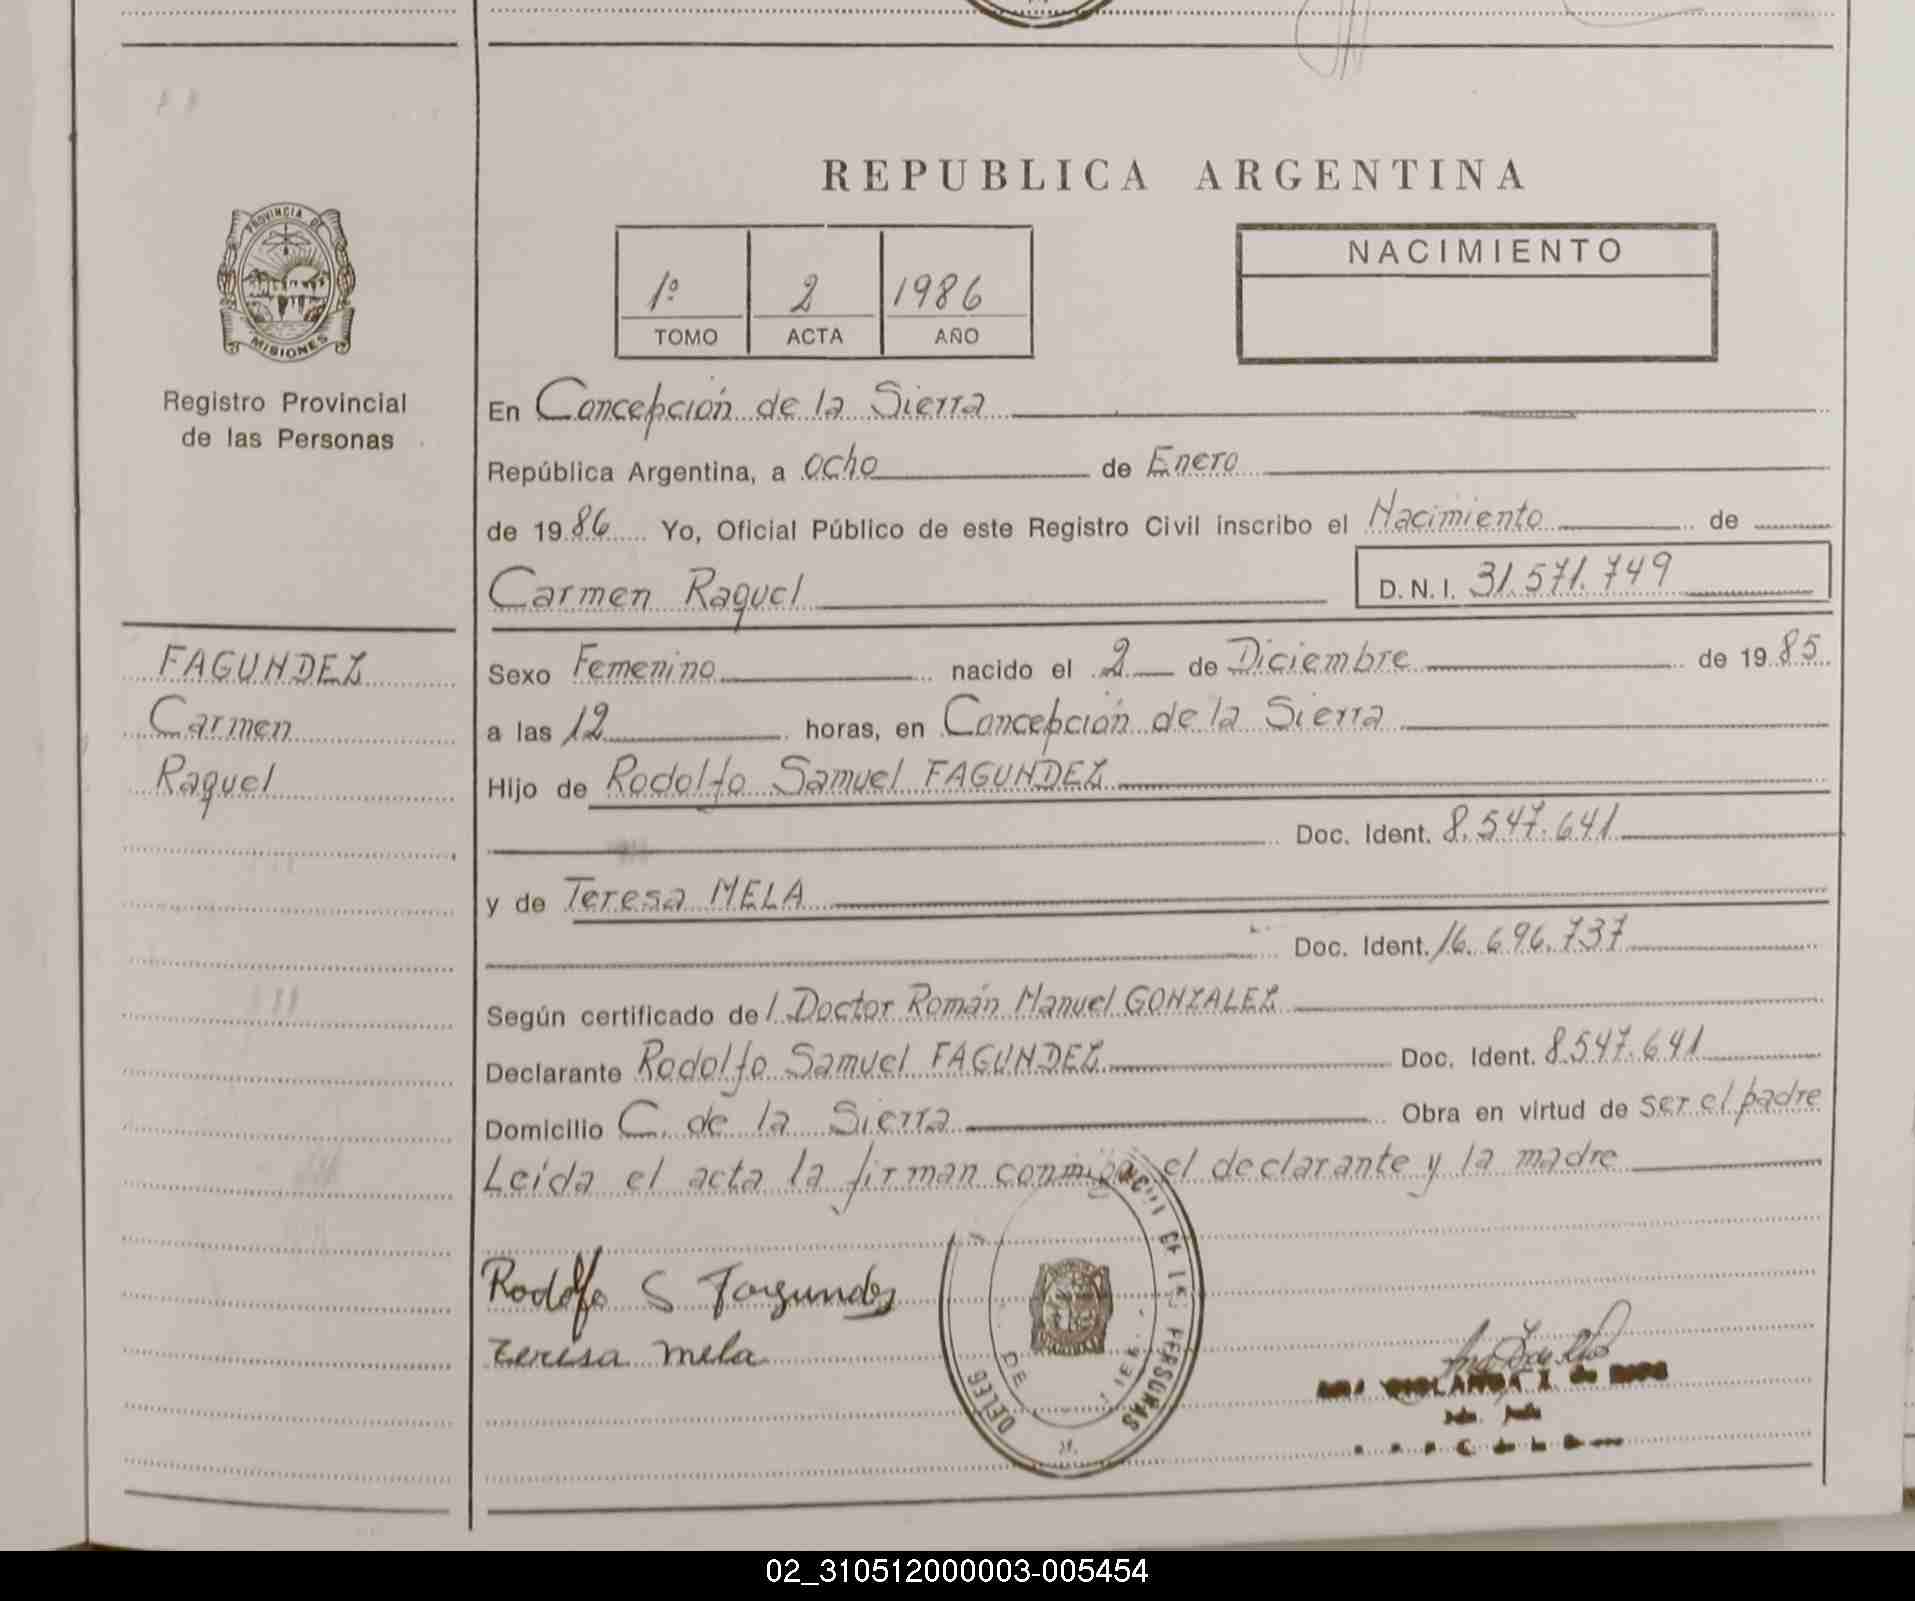 REPUBLICA ARGENTINA
PROVINCIA DE
MISIONES
Registro Provincial
de las Personas
1º 2 1986
TOMO ACTA AÑO
NACIMIENTO
En Concepción de la Sierra
República Argentina, a ocho de Enero
de 1986 Yo, Oficial Público de este Registro Civil inscribo el Nacimiento de
Carmen Raquel D.N.I. 31.571.749
FAGUNDEZ
Carmen
Raquel
Sexo Femenino nacido el 2 de Diciembre de 1985
a las 12 horas, en Concepción de la Sierra
Hijo de Rodolfo Samuel FAGUNDEZ
Doc. Ident. 8.547.641
y de Teresa MELA
Doc. Ident. 16.696.737
Según certificado del Doctor Román Manuel GONZALEZ
Declarante Rodolfo Samuel FAGUNDEZ Doc. Ident. 8.547.641
Domicilio C. de la Sierra Obra en virtud de ser el padre
Leída el acta la firman conmigo el declarante y la madre
Rodolfo S Fagundez
Teresa mela
PERSONAS
DE
02_310512000003-005454